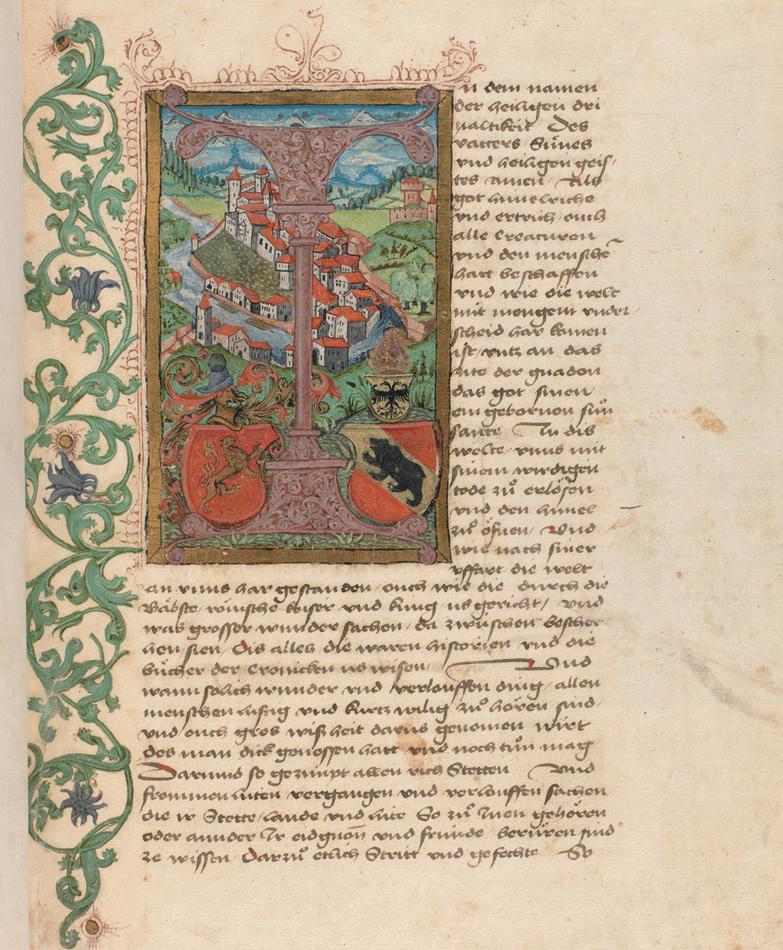 n dem namen
der heiligen dri
ualtikeit Des
vatters Sünes
vnd heiligen geis
tes amen Als
got himelriche
vnd ertrich ouch
alle Creaturen
vnd den mensche
hatt beschaffen
vnd wie die welt
mit mengem vnder
scheid har komen
ist vntz an das
zite der gnaden
das got sinen
ein gebornen sun
sante In dis
welte vnns mit
sinem wirdigen
tode zů erlösen
vnd den himel
zů öfnen Vnd
wie nach siner
vffart die welt
an vnns har gestanden ouch wie die durch die
Bäbste römsche keiser vnd küng us gericht vnd
was grosser wunder sachen da zwüschen besche
hen sien Dis alles die waren historien vnd die
bücher der Cronicken us wisen Vnd
wann sölich wunder vnd verlouffen ding allen
menschen lustig vnd kurtzwilig zů hören sind
vnd ouch gros wisheit darus genomen wirt
des man dick genossen hatt vnd noch tůn mag
Darumb so gezimpt allen rich Stetten Vnd
frommen lüten vergangen vnd verlouffen sachen
die ir Stette lande vnd lüte So zů Inen gehören
oder annder Ir eidgnon vnd fründe berüren sind
ze wissen Darzů etlich Stritt vnd gefechte So